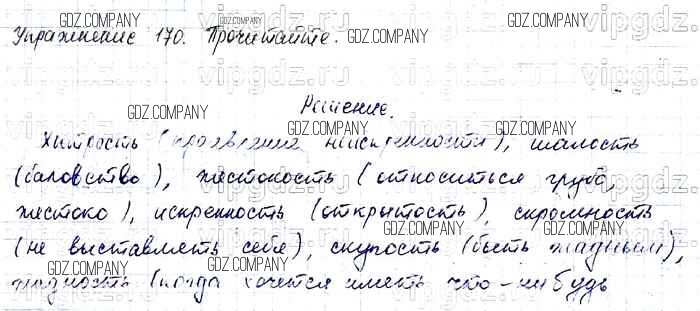 GDZ.COMPANY GDZ.COMPANY GDZ.COMPANY
Упражнение 170. Прочитайте.
vipgdz.ru vipgdz.ru vipgdz.ru
GDZ.COMPANY GDZ.COMPANY GDZ.COMPANY
Решение.
GDZ.COMPANY GDZ.COMPANY GDZ.COMPANY
Хитрость (проявление неискренности), шалость
(баловство), жестокость (относиться грубо,
GDZ.COMPANY GDZ.COMPANY GDZ.COMPANY
жестоко), искренность (открытость), скромность
(не выставлять себя), скупость (быть жадным),
GDZ.COMPANY GDZ.COMPANY GDZ.COMPANY
жадность (когда хочется иметь что-нибудь